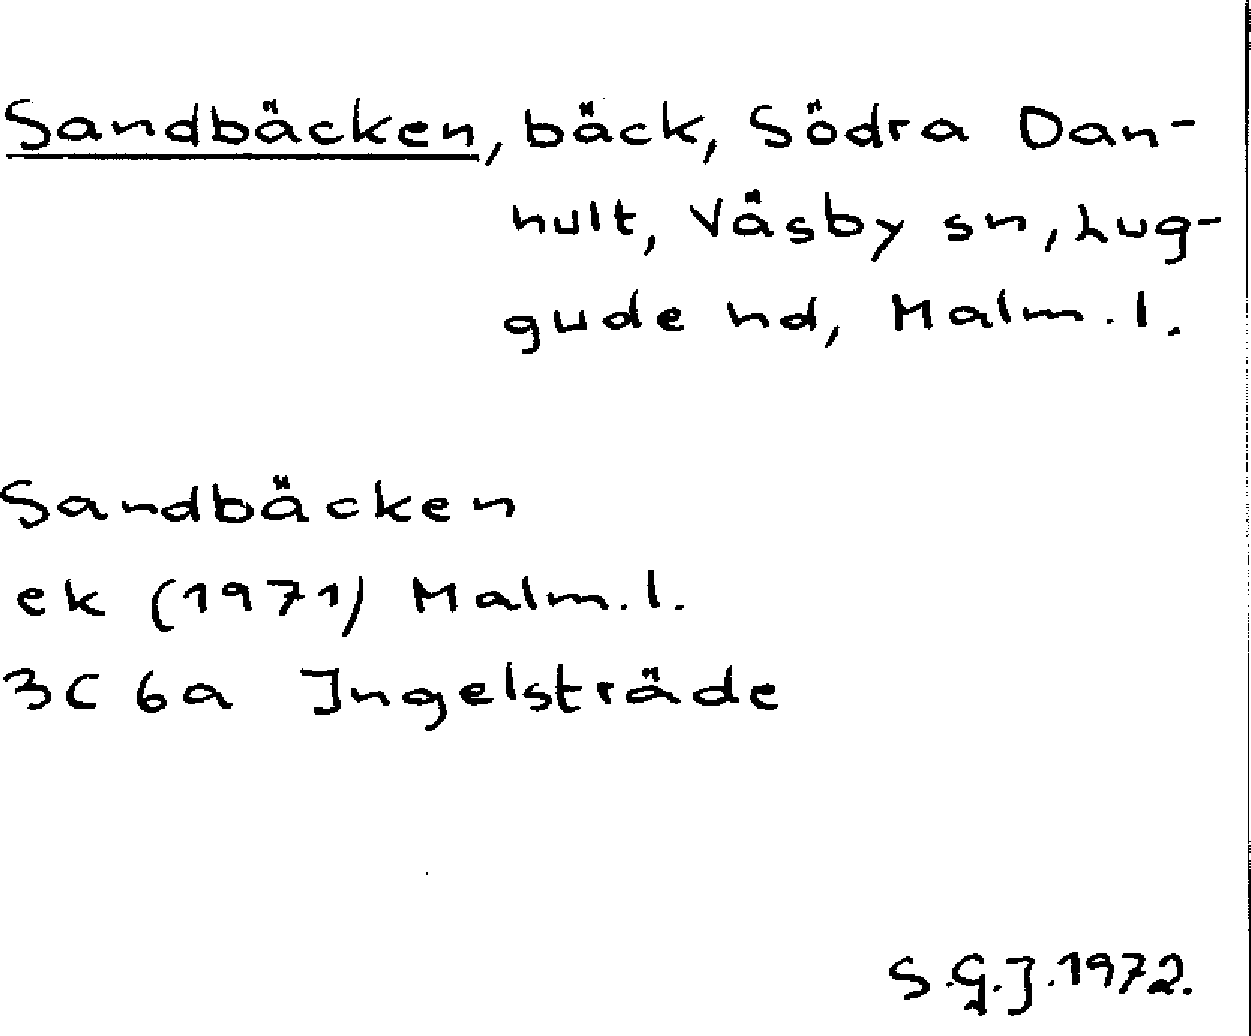 Sandbäcken, bäck, Södra Dan-
hult, Väsby sn, Lug-
gude hd, Malm. l.
Sandbäcken
ek (1971) Malm. l.
3C 6a Ingelsträde
S.G.J. 1972.